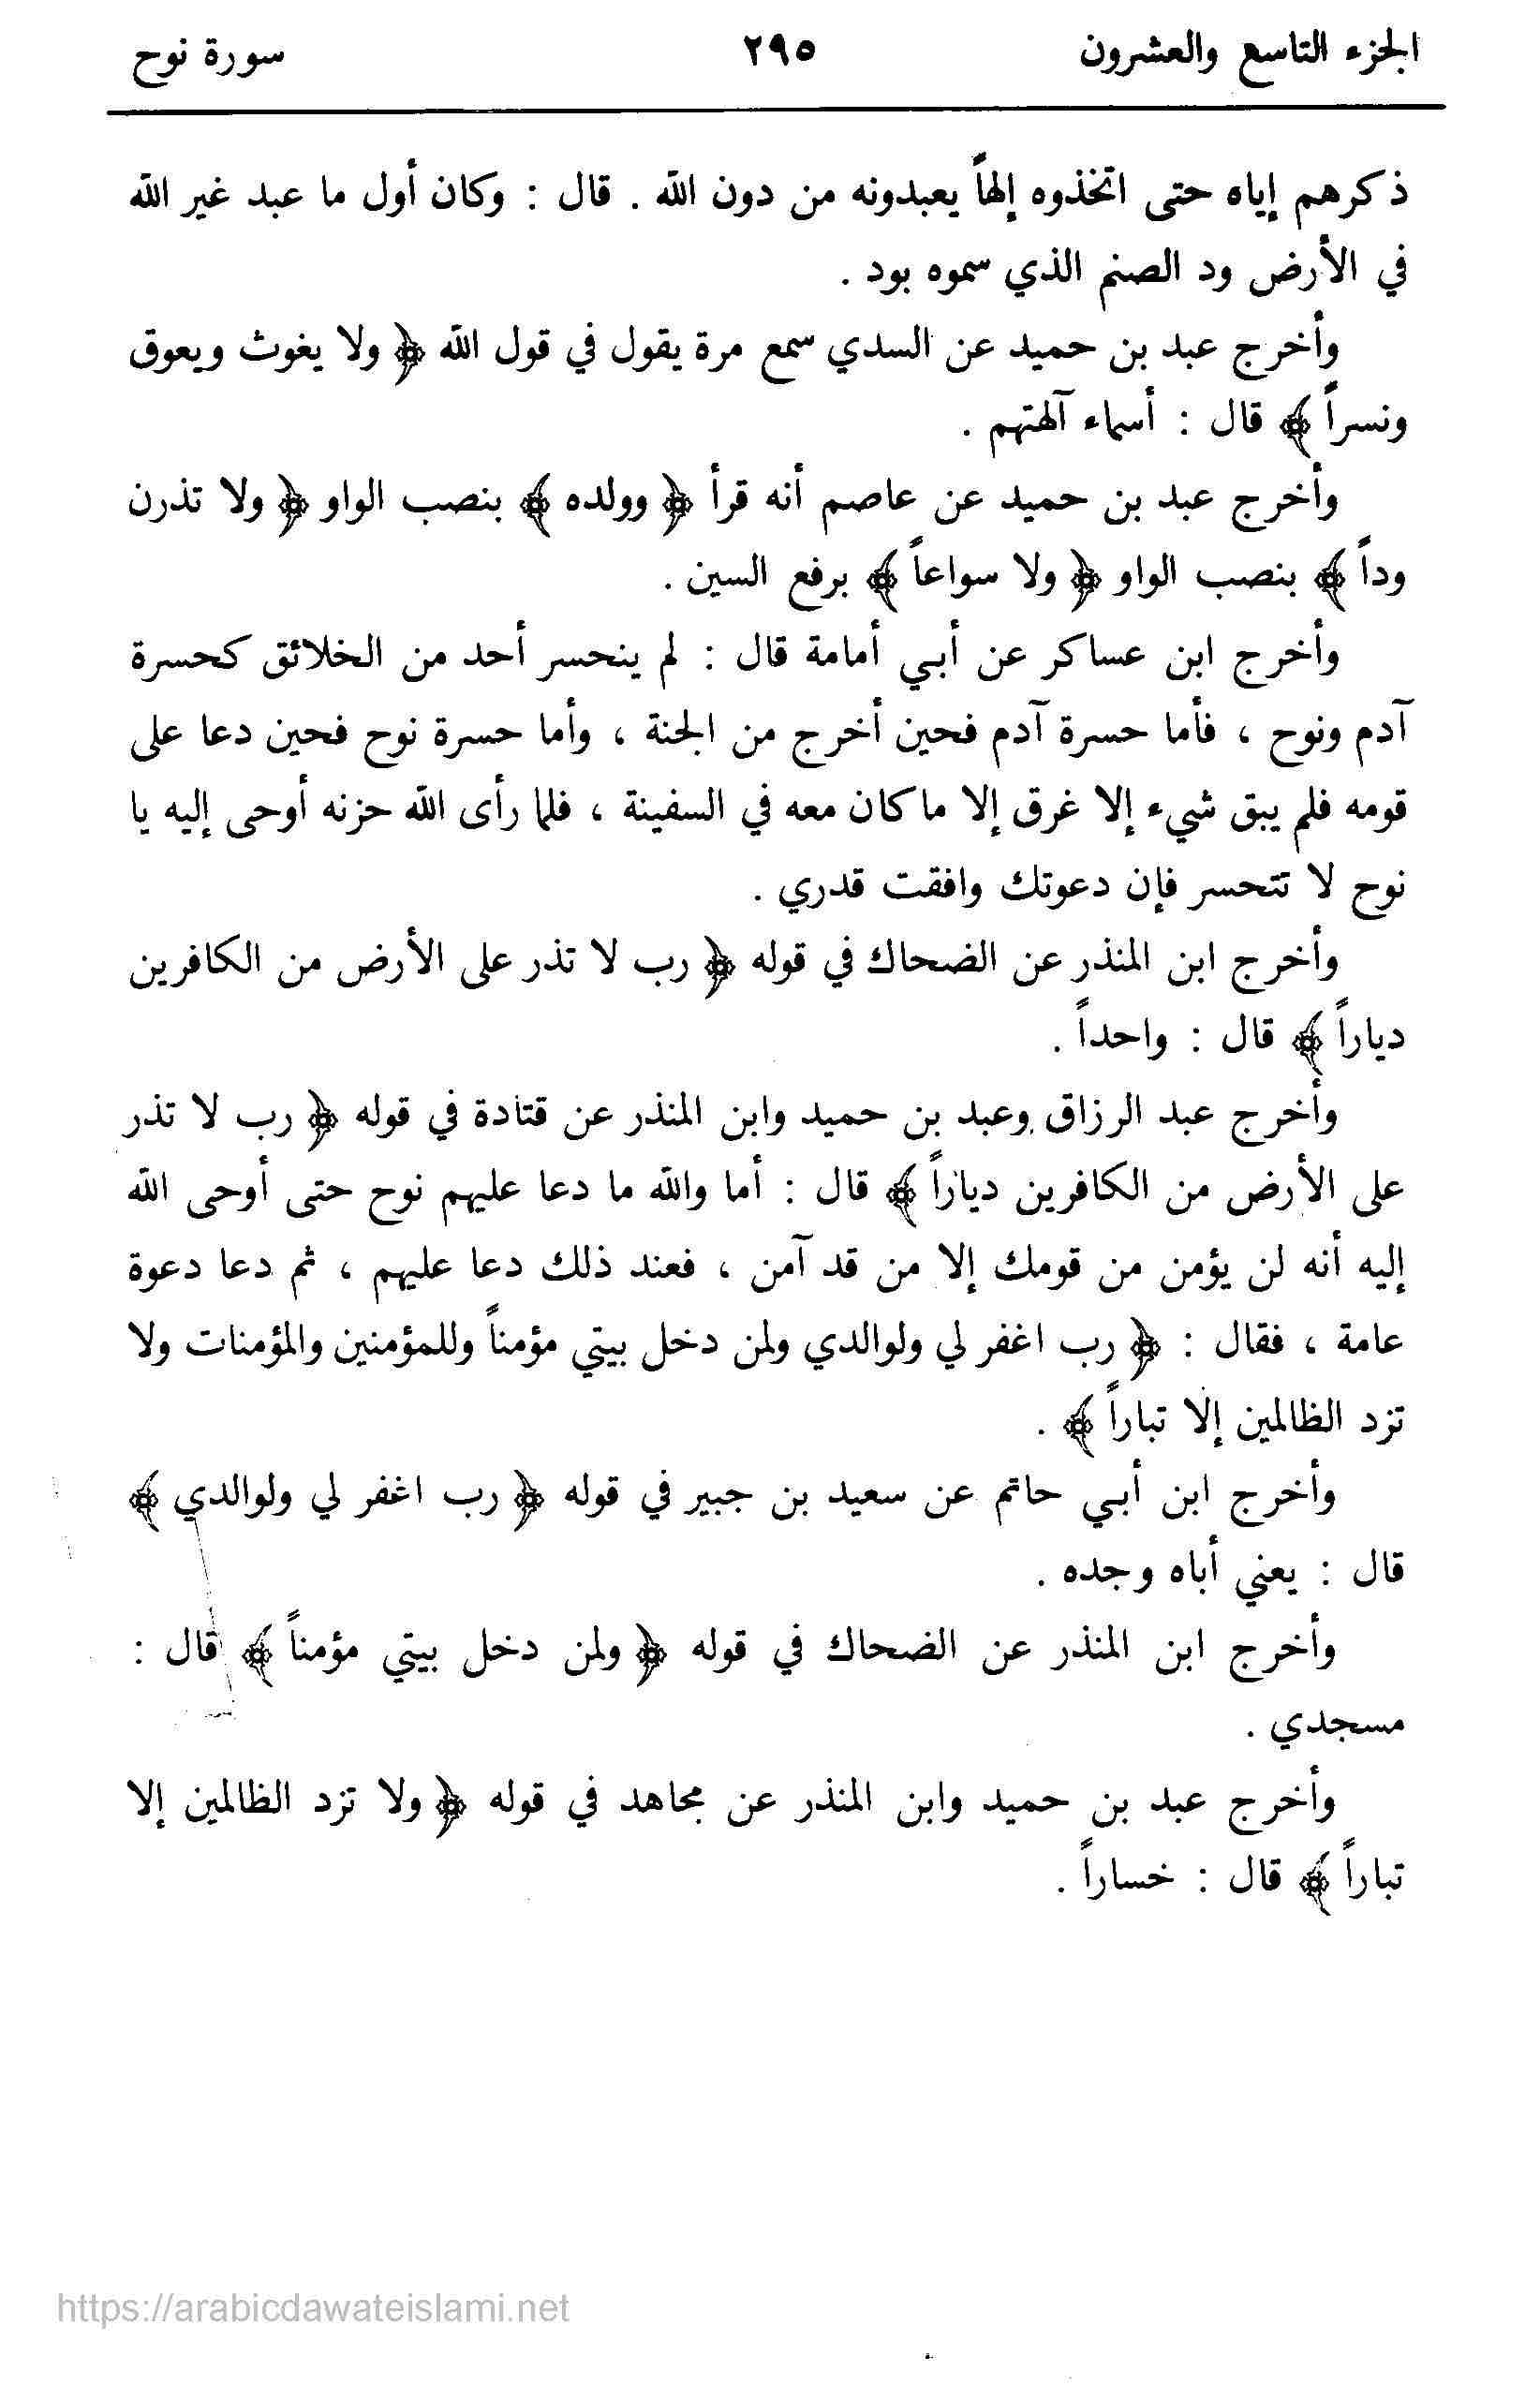 الجزء التاسع والعشرون ٢٩٥ سورة نوح
ذكرهم إياه حتى اتخذوه إلهاً يعبدونه من دون الله . قال : وكان أول ما عبد غير الله
في الأرض ود الصنم الذي سموه بود .
وأخرج عبد بن حميد عن السدي سمع مرة يقول في قول الله ﴿ ولا يغوث ويعوق
ونسراً ﴾ قال : أسماء آلهتهم .
وأخرج عبد بن حميد عن عاصم أنه قرأ ﴿ وولده ﴾ بنصب الواو ﴿ ولا تذرن
وداً ﴾ بنصب الواو ﴿ ولا سواعاً ﴾ برفع السين .
وأخرج ابن عساكر عن أبي أمامة قال : لم ينحسر أحد من الخلائق كحسرة
آدم ونوح ، فأما حسرة آدم فحين أخرج من الجنة ، وأما حسرة نوح فحين دعا على
قومه فلم يبق شيء إلا غرق إلا ما كان معه في السفينة ، فلما رأى الله حزنه أوحى إليه يا
نوح لا تتحسر فإن دعوتك وافقت قدري .
وأخرج ابن المنذر عن الضحاك في قوله ﴿ رب لا تذر على الأرض من الكافرين
دياراً ﴾ قال : واحداً .
وأخرج عبد الرزاق وعبد بن حميد وابن المنذر عن قتادة في قوله ﴿ رب لا تذر
على الأرض من الكافرين دياراً ﴾ قال : أما والله ما دعا عليهم نوح حتى أوحى الله
إليه أنه لن يؤمن من قومك إلا من قد آمن ، فعند ذلك دعا عليهم ، ثم دعا دعوة
عامة ، فقال : ﴿ رب اغفر لي ولوالدي ولمن دخل بيتي مؤمناً وللمؤمنين والمؤمنات ولا
تزد الظالمين إلا تباراً ﴾ .
وأخرج ابن أبي حاتم عن سعيد بن جبير في قوله ﴿ رب اغفر لي ولوالدي ﴾
قال : يعني أباه وجده .
وأخرج ابن المنذر عن الضحاك في قوله ﴿ ولمن دخل بيتي مؤمناً ﴾ قال :
مسجدي .
وأخرج عبد بن حميد وابن المنذر عن مجاهد في قوله ﴿ ولا تزد الظالمين إلا
تباراً ﴾ قال : خساراً .
https://arabicdawateislami.net